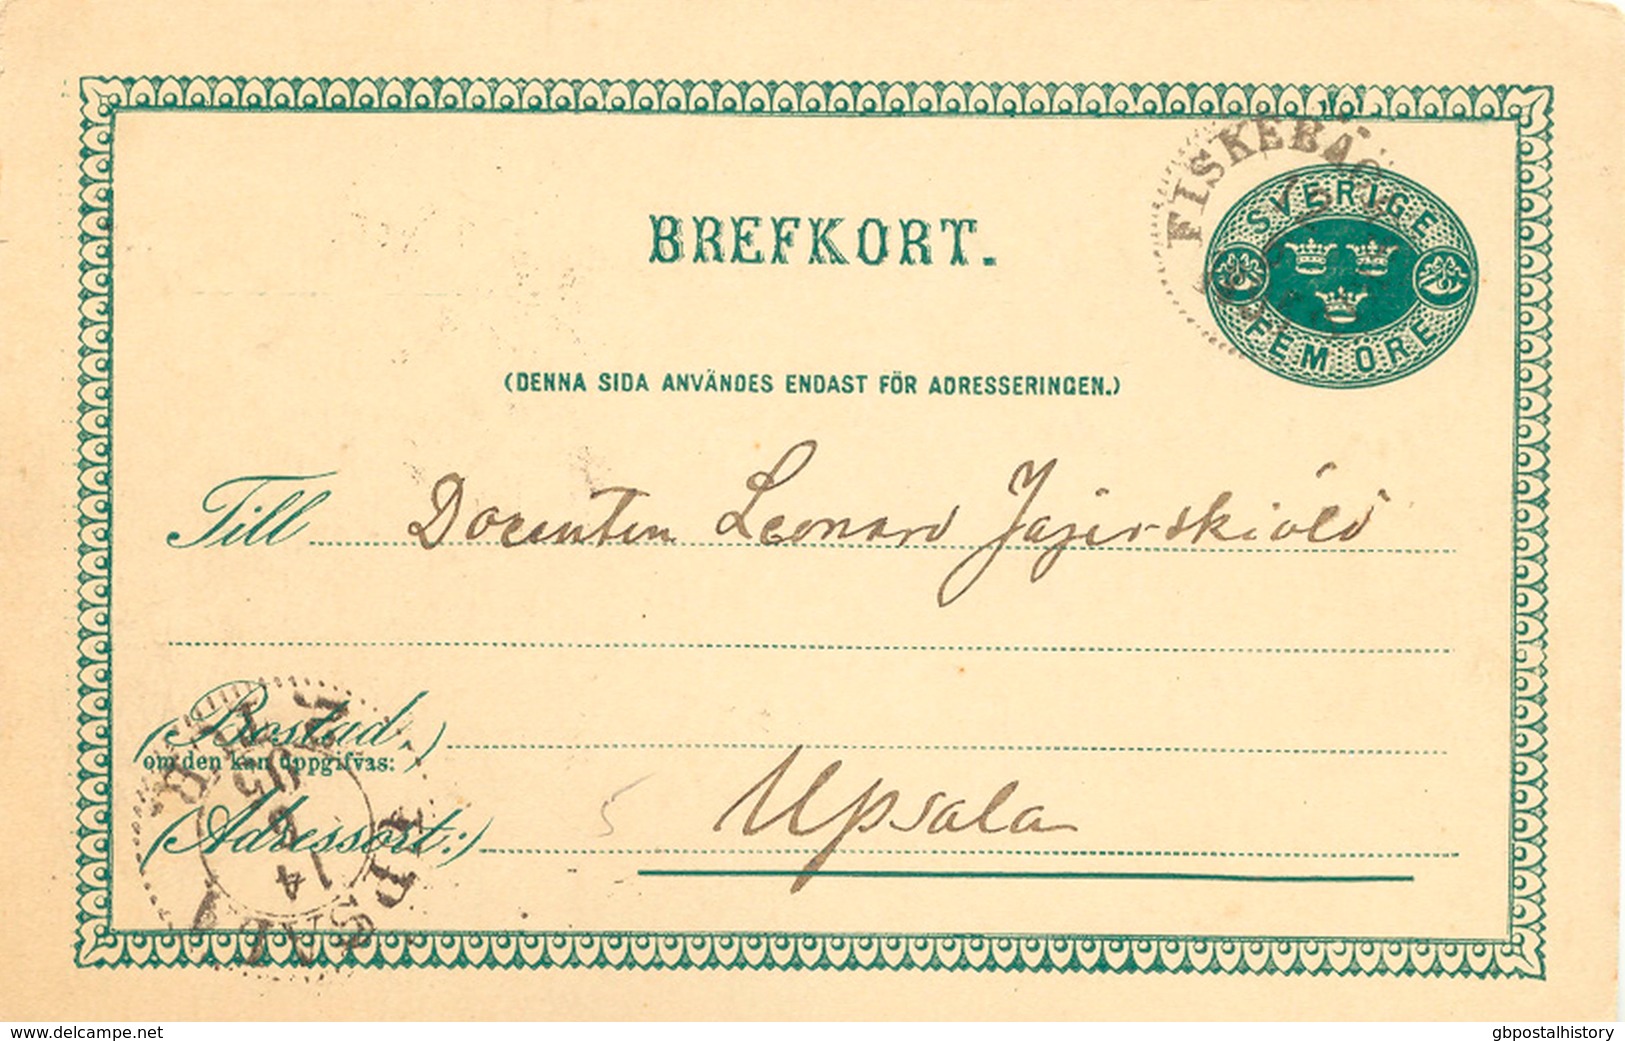 FISKEBÄCK
SVERIGE
FEM ÖRE
BREFKORT.
(DENNA SIDA ANVÄNDES ENDAST FÖR ADRESSERINGEN.)
Till Docenten Leonard Jägerskiöld
(Bostad,)
om den kan uppgifvas:
(Adressort:) Upsala
UPSALA
14
delcampe.net
gbpostalhistory